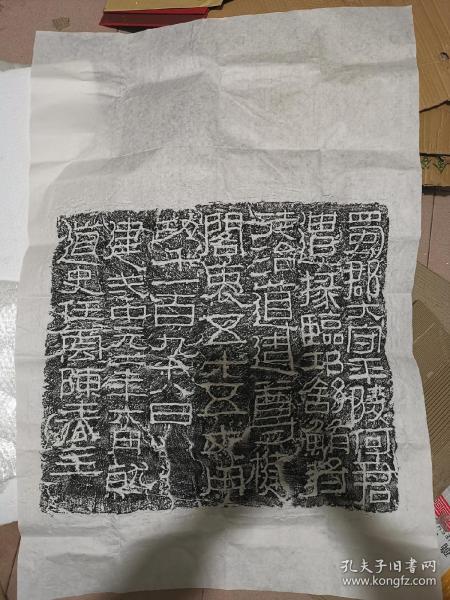 蜀郡大守平陵何君
遣掾臨邛舒鮪將
徒治道造尊楗閣
袤五十五丈用
功千一百九十八日
建武中元二年六月就
道史任雲陳春主
孔夫子旧书网
www.kongfz.com